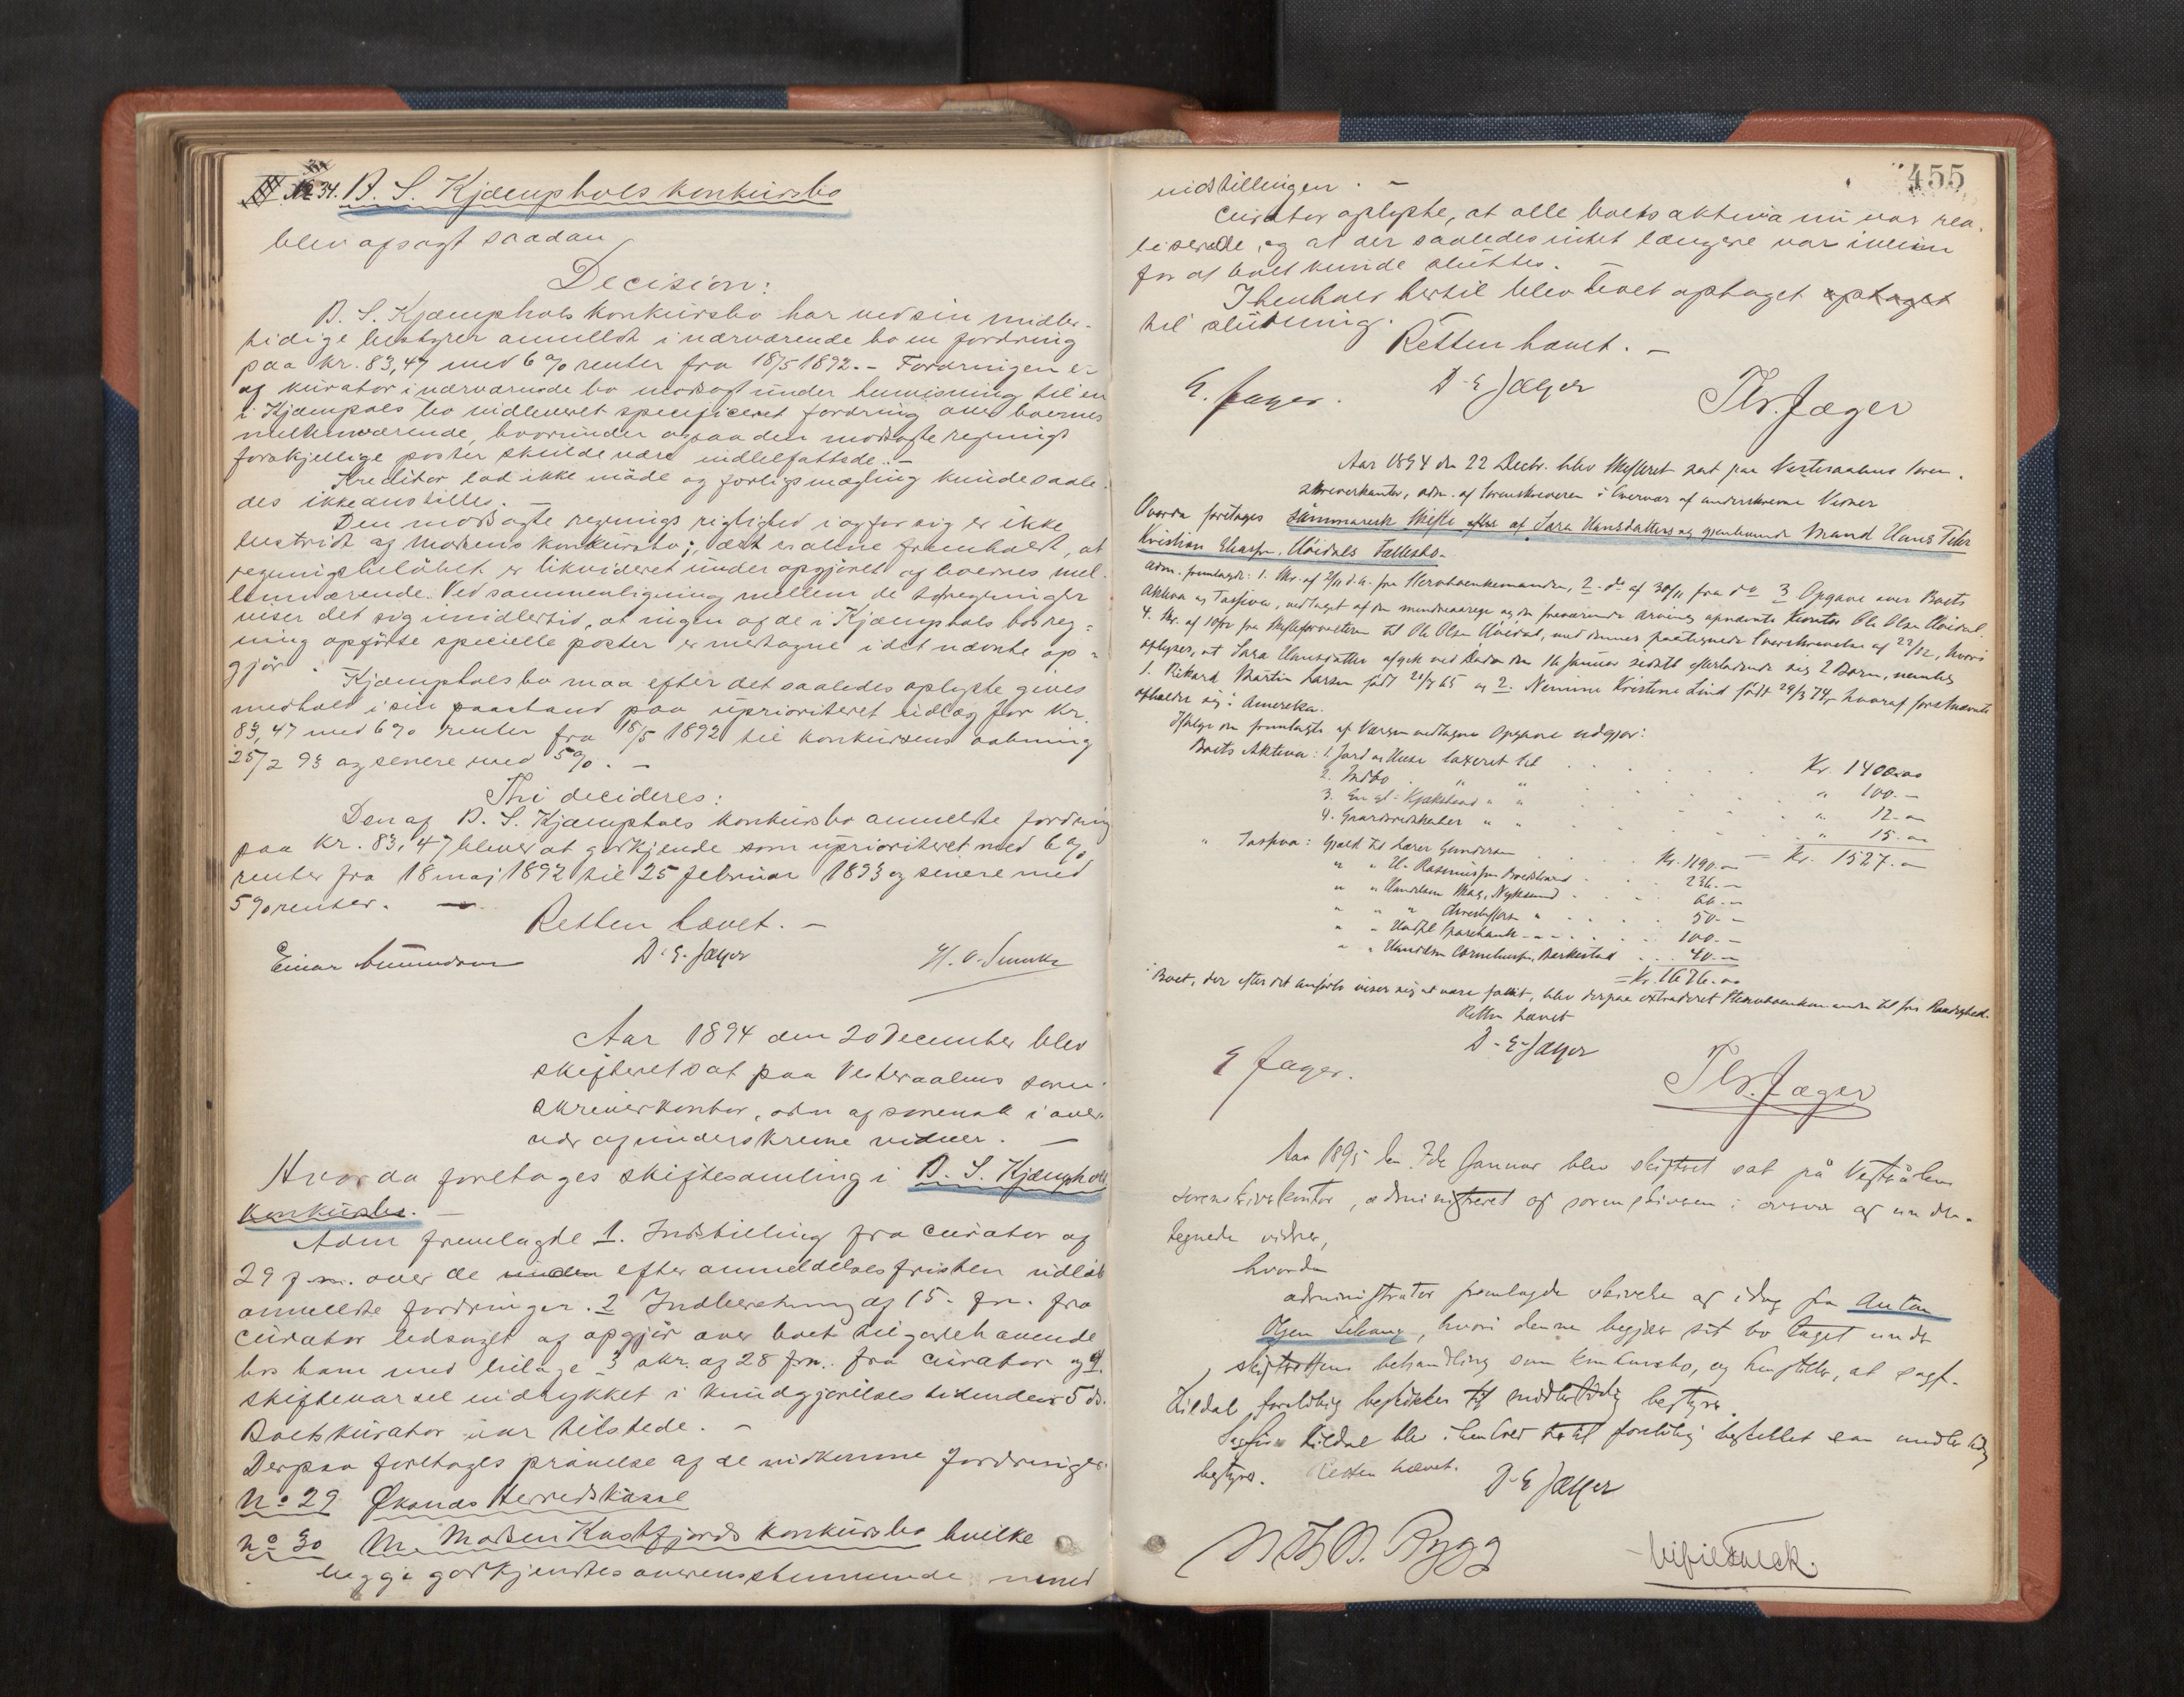 No 34. B. S. Kjæmphols konkursbo
blev afsagt saadan
Decision:
B. S. Kjæmphols konkursbo har ved sin midler-
tidige bestyrer anmeldt i nærværende bo en fordring
paa kr. 83,47 med 6 % renter fra 18/5 1892. - Fordringen er
af kurator i nærværende bo modsagt under henvisning til en
i Kjæmphols bo indleveret specificeret fordring over boernes
mellemværende, hvorunder ogsaa den modsagte regnings
forskjellige poster skulde være indbefattede. -
Kreditor lod ikke møde og forligsmægling kunde saale-
des ikke anstilles. -
Den modsagte regnings rigtighed i og for sig er ikke
bestridt af Madsens konkursbo; det er alene fremholdt, at
regningsbeløbet er likvideret under opgjøret af boernes mel-
lemværende. Ved sammenligning mellem de to regninger
viser det sig imidlertid, at ingen af de i Kjæmphols bos reg-
ning opførte specielle poster er medtagne i det nævnte op-
gjør.
Kjæmphols bo maa efter det saaledes oplyste gives
medhold i sin paastand paa uprioriteret udlæg for kr.
83,47 med 6 % renter fra 18/5 1892 til konkursens aabning
25/2 93 og senere med 5 %. -
Thi decideres:
Den af B. S. Kjæmphols konkursbo anmeldte fordring
paa kr. 83,47 bliver at godkjende som uprioriteret med 6 %
renter fra 18 maj 1892 til 25 februar 1893 og senere med
5 % renter. -
Retten hævet. -
Einar D. E. Jæger H. O.
Aar 1894 den 20 December blev
skifteret sat paa Vesteraalens soren-
skriverkontor, adm af sorensk i over-
vær af underskrevne vidner. -
Hvorda foretages skiftesamling i B. S. Kjæmphols
konkursbo. -
Adm fremlagde 1. Indstilling fra curator af
29 f.m. over de inden efter anmeldelsesfristen udløb
anmeldte fordringer. 2 Indberetning af 15. fm. fra
curator ledsaget af opgjør over boet tilgodehavende
hos ham med bilage 3 skr. af 28 fm. fra curator og 4.
skiftevarsel indrykket i kundgjørelsestidenden 5 ds.
Boets kurator var tilstede. -
Derpaa foretages prøvelse af de indkomne fordringer.
No 29 Øksnes Herredskasse
No 30 M. Madsen Kastfjords konkursbo hvilke
begge godkjendtes overensstemmende med
455
indstillingen. -
Curator oplyste, at alle boets aktiva nu var rea-
liserede, og at der saaledes intet længere var iveien
for at boet kunde sluttes. -
I henhold hertil blev boet optaget optaget
til slutning.
Retten hævet. -
E. Jæger. D. E. Jæger Thv. Jæger
Aar 1894 den 22 Decbr. blev skifteret sat paa Vesteraalens soren-
skriverkontor, adm. af sorenskriveren i Overvær af underskrevne Vidner
Hvorda foretages summarisk skifte efter af Sara Hansdatters og gjenlevende Mand Hans Peter
Kristian Høidals Fællesbo.
Adm. fremlagde: 1. Skr. af 2/11 d.A. fra Stervboenkemanden, 2. do af 30/11 fra do 3 Opgave over Boets
Aktiva og Passiva, vedtaget af den mindreaarige og den fraværende Arvings opnævnte Kurator Ole Olsen Høidal.
4. Skr. af 10/12 fra Skifteforvalteren til Ole Olsen Høidal, med dennes paategnede Overskrivelse af 22/12, hvori
oplyses, at Sara Hansdatter afgik ved Døden den 16 Januar sidstl efterladende sig 2 Børn, nemlig
1. Rikard Martin Larsen født 21/7 65 og 2. Nennine Kristine Lind født 29/3 74, hvoraf førstnævnte
opholder sig i Amerika.
Ifølge den fremlagte af Værgen vedtagne Opgave udgjør:
Boets Aktiva: 1. Jord og Huse taxeret til . . . Kr. 1400.00
2. Indbo " " . . . " 100.-
3. En gl. " " . . . " 12.-
4. Gaardsredskaber " " . . . " 15.-
= Kr. 1527.-
" Passiva: Gjæld til Lærer Gundersen . . . Kr. 1190.-
" " H. Rasmussen . . . 236.-
" " Handelsm Nyksund . . . 60.-
" " " " . . . 50.-
" " Hadsel Sparebank . . . 100.-
" " Handelsm Corneliussen, Barkestad . . . 40.-
= Kr. 1676.00
Boet, der efter det anførte viser sig at være fallit, blev derpaa extraderet Stervboenkemanden til fri Raadighed.
Retten hævet
E Jæger. D. E. Jæger Thv. Jæger
Aar 1895 den 7de Januar blev skifteret sat på Vesterålens
sorenskriverkontor, administreret af sorenskriveren i overvær af under-
tegnede vidner,
hvorda
administrator fremlagde skrivelse af idag fra Anton
Olsen, hvori denne begjærer sit bo taget under
skifterettens behandling som konkursbo, og henstiller, at sagf.
Kildal foreløbig beskikkes til midlertidig bestyrer.
Sagfører Kildal blev i henhold hertil foreløbig beskikket som midlertidig
bestyrer. Retten hævet. D. E. Jæger
Rygg